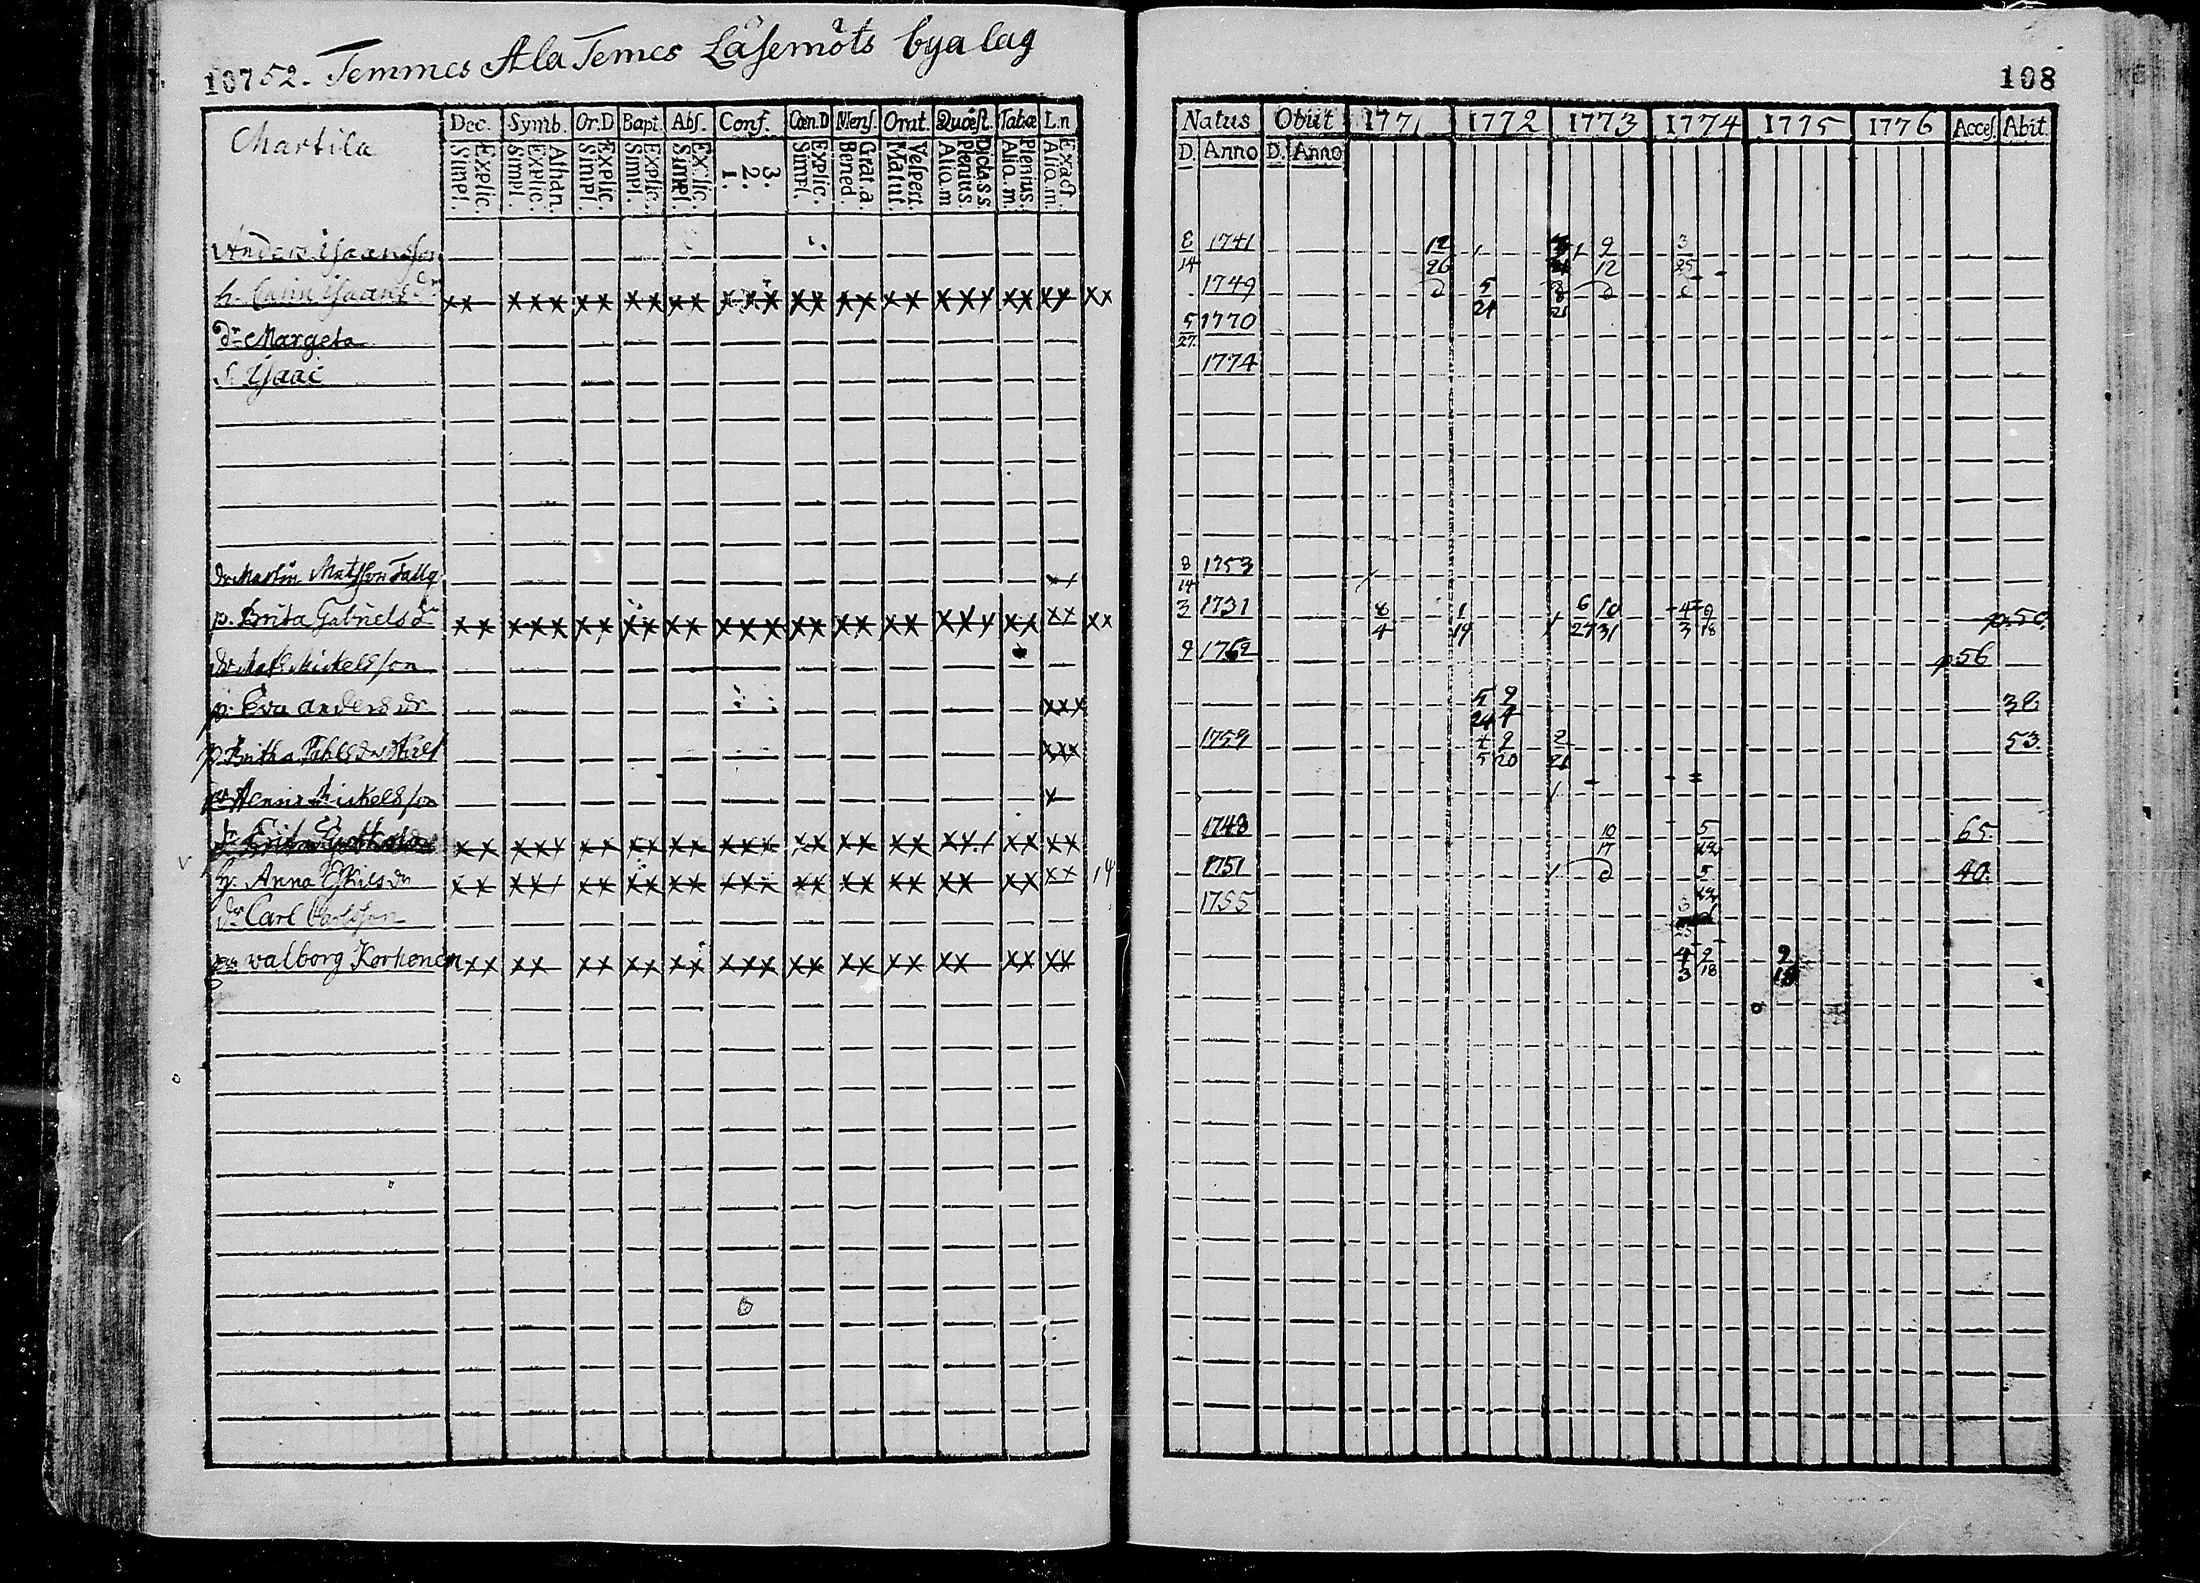 10752. Temmes Ala Temes Låsemöts byalag
108
Martila
Dec. Symb. Or.D Bapt. Abs. Conf. Cœn.D Mens. Orat. Quæst. Tabæ L.n
Simpl. Explic. Simpl. Explic. Athan. Simpl. Explic. Simpl. Explic. Simpl. Explic. 1. 2. 3. Simpl. Explic. Bened. Grat. a. Matut. Vespert. Alia.m Plenius. Dicta.s.s. Alia.m. Plenius. Alia.m. Exact.
Natus Obiit 1771 1772 1773 1774 1775 1776 Acces. Abit.
D. Anno D. Anno
Anders Isaacsson 8/14 1741 12/26 9/12 3/25
h. Carin Isaacs dr xx xxx xx xx xx xxx xx xx xx xxx xx xx xx 1749 5/24
dr Margeta 5/27. 1770
S. Isaac 1774
dr Martin Matsson Tallg 8/14 1753
p. Brita Gabriels dr xx xxx xx xx xx xxx xx xx xx xxx xx xx xx 3 1731 8/4 1/19 6/27 10/31 4/3 9/18 p.50.
dr Mats Mickelsson 9 1762 p.56
p. Eva Anders dr xxx 5/24 9/4 38
p. Britha Påhls dr xxx 1759 4/5 9/20 2/21 53.
Henric Mickelsson x
xx xxx xx xx xx xxx xx xx xx xx xx xx 1748 10/17 5 65.
h. Anna Eskils dr xx xxx xx xx xx xxx xx xx xx xx xx xx 14 1751 5 40.
dr Carl Carlsson 1755 3/25
Walborg Korhonen xx xx xx xx xx xxx xx xx xx xx xx xx 4/3 9/18 2/18